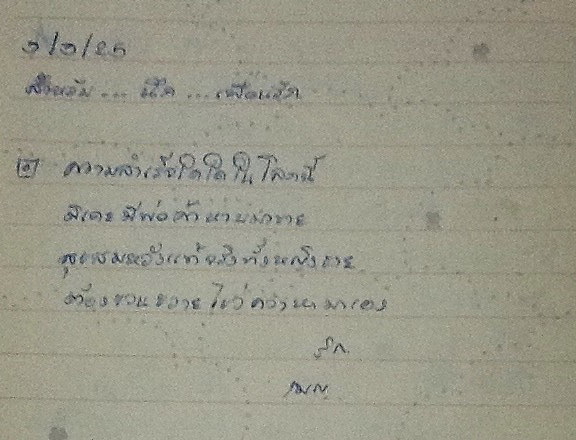 ๑/๑/๒๖
สำหรับ... นึก... เพื่อนรัก
ความสำเร็จใดใดในโลกนี้
มิเคยมีพ่อค้านำมาขาย
สุขสมหวังแท้จริงทั้งหญิงชาย
ต้องขวนขวายไขว่คว้าหามาเอง
รัก